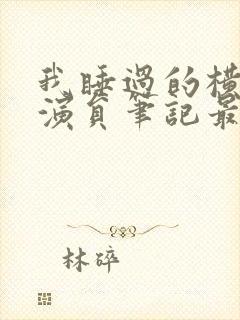 我睡過的橫
演員筆記最
林碎